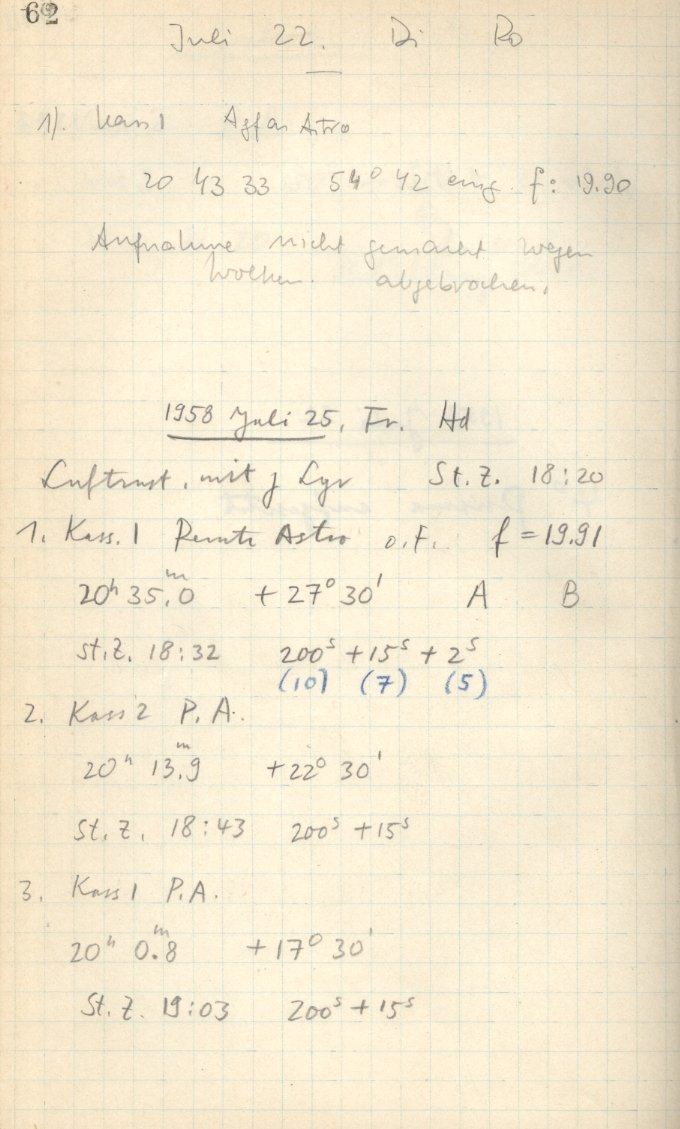 62
Juli 22. Di Ro
1). Kass 1 Agfa Astro
20 43 33 54° 42 eing. f: 19.90
Aufnahme nicht gemacht wegen
Wolken abgebrochen.
1958 Juli 25, Fr. Hd
mit γ Lyr St. Z. 18:20
1. Kass. 1 Perutz Astro o.F. f = 19.91
20ʰ 35.ᵐ0 + 27° 30' A B
St. Z. 18:32 200ˢ + 15ˢ + 2ˢ
(10) (7) (5)
2. Kass 2 P. A.
20ʰ 13.ᵐ9 + 22° 30'
St. Z. 18:43 200ˢ + 15ˢ
3. Kass 1 P.A.
20ʰ 0.ᵐ8 + 17° 30'
St. Z. 19:03 200ˢ + 15ˢ